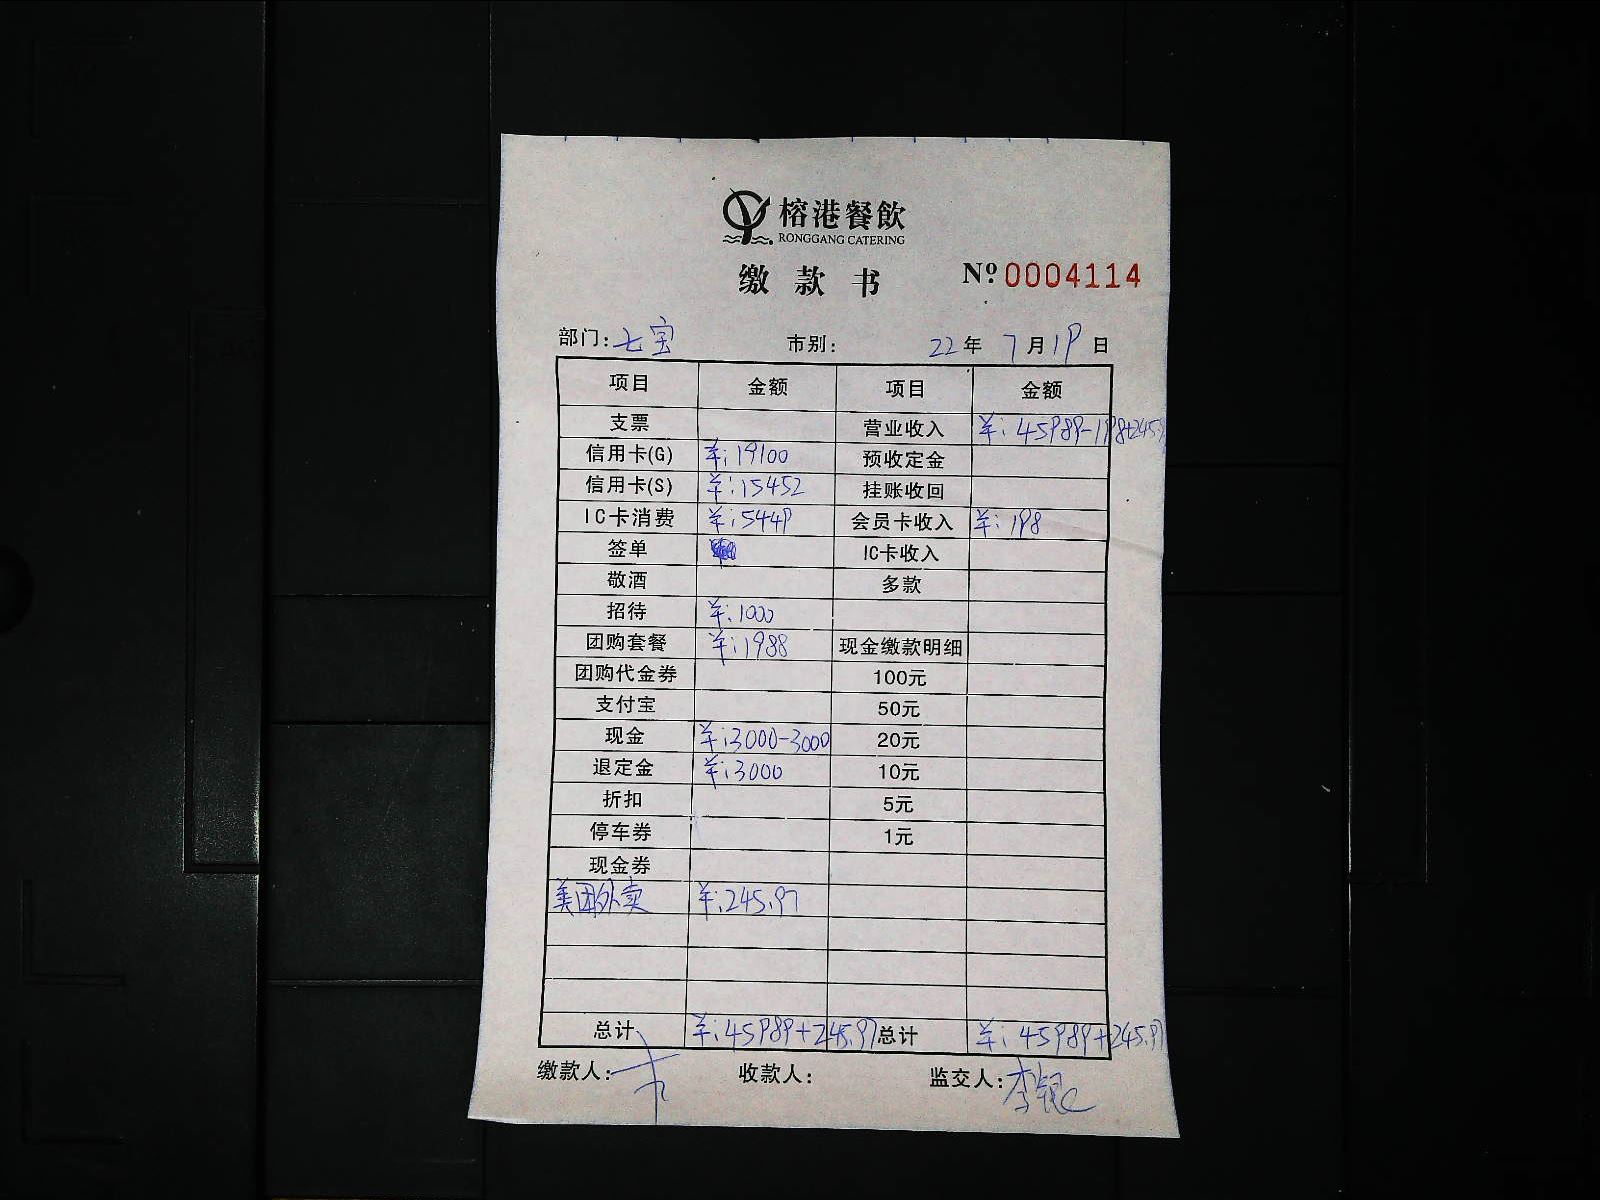 榕港餐飲
RONGGANG CATERING
缴款书 Nº 0004114
部门: 七宝 市别: 22年 7月19日
项目 金额 项目 金额
支票 营业收入 羊: 45989-198+245.9
信用卡(G) 羊: 19100 预收定金
信用卡(S) 羊: 15452 挂账收回
IC卡消费 羊: 5449 会员卡收入 羊: 198
签单 IC卡收入
敬酒 多款
招待 羊: 1000
团购套餐 羊: 1988 现金缴款明细
团购代金券 100元
支付宝 50元
现金 羊: 3000-3000 20元
退定金 羊: 3000 10元
折扣 5元
停车券 1元
现金券
美团外卖 羊: 245.97
总计 羊: 45989+245.97 总计 羊: 45989+245.97
缴款人: 收款人: 监交人: 李银